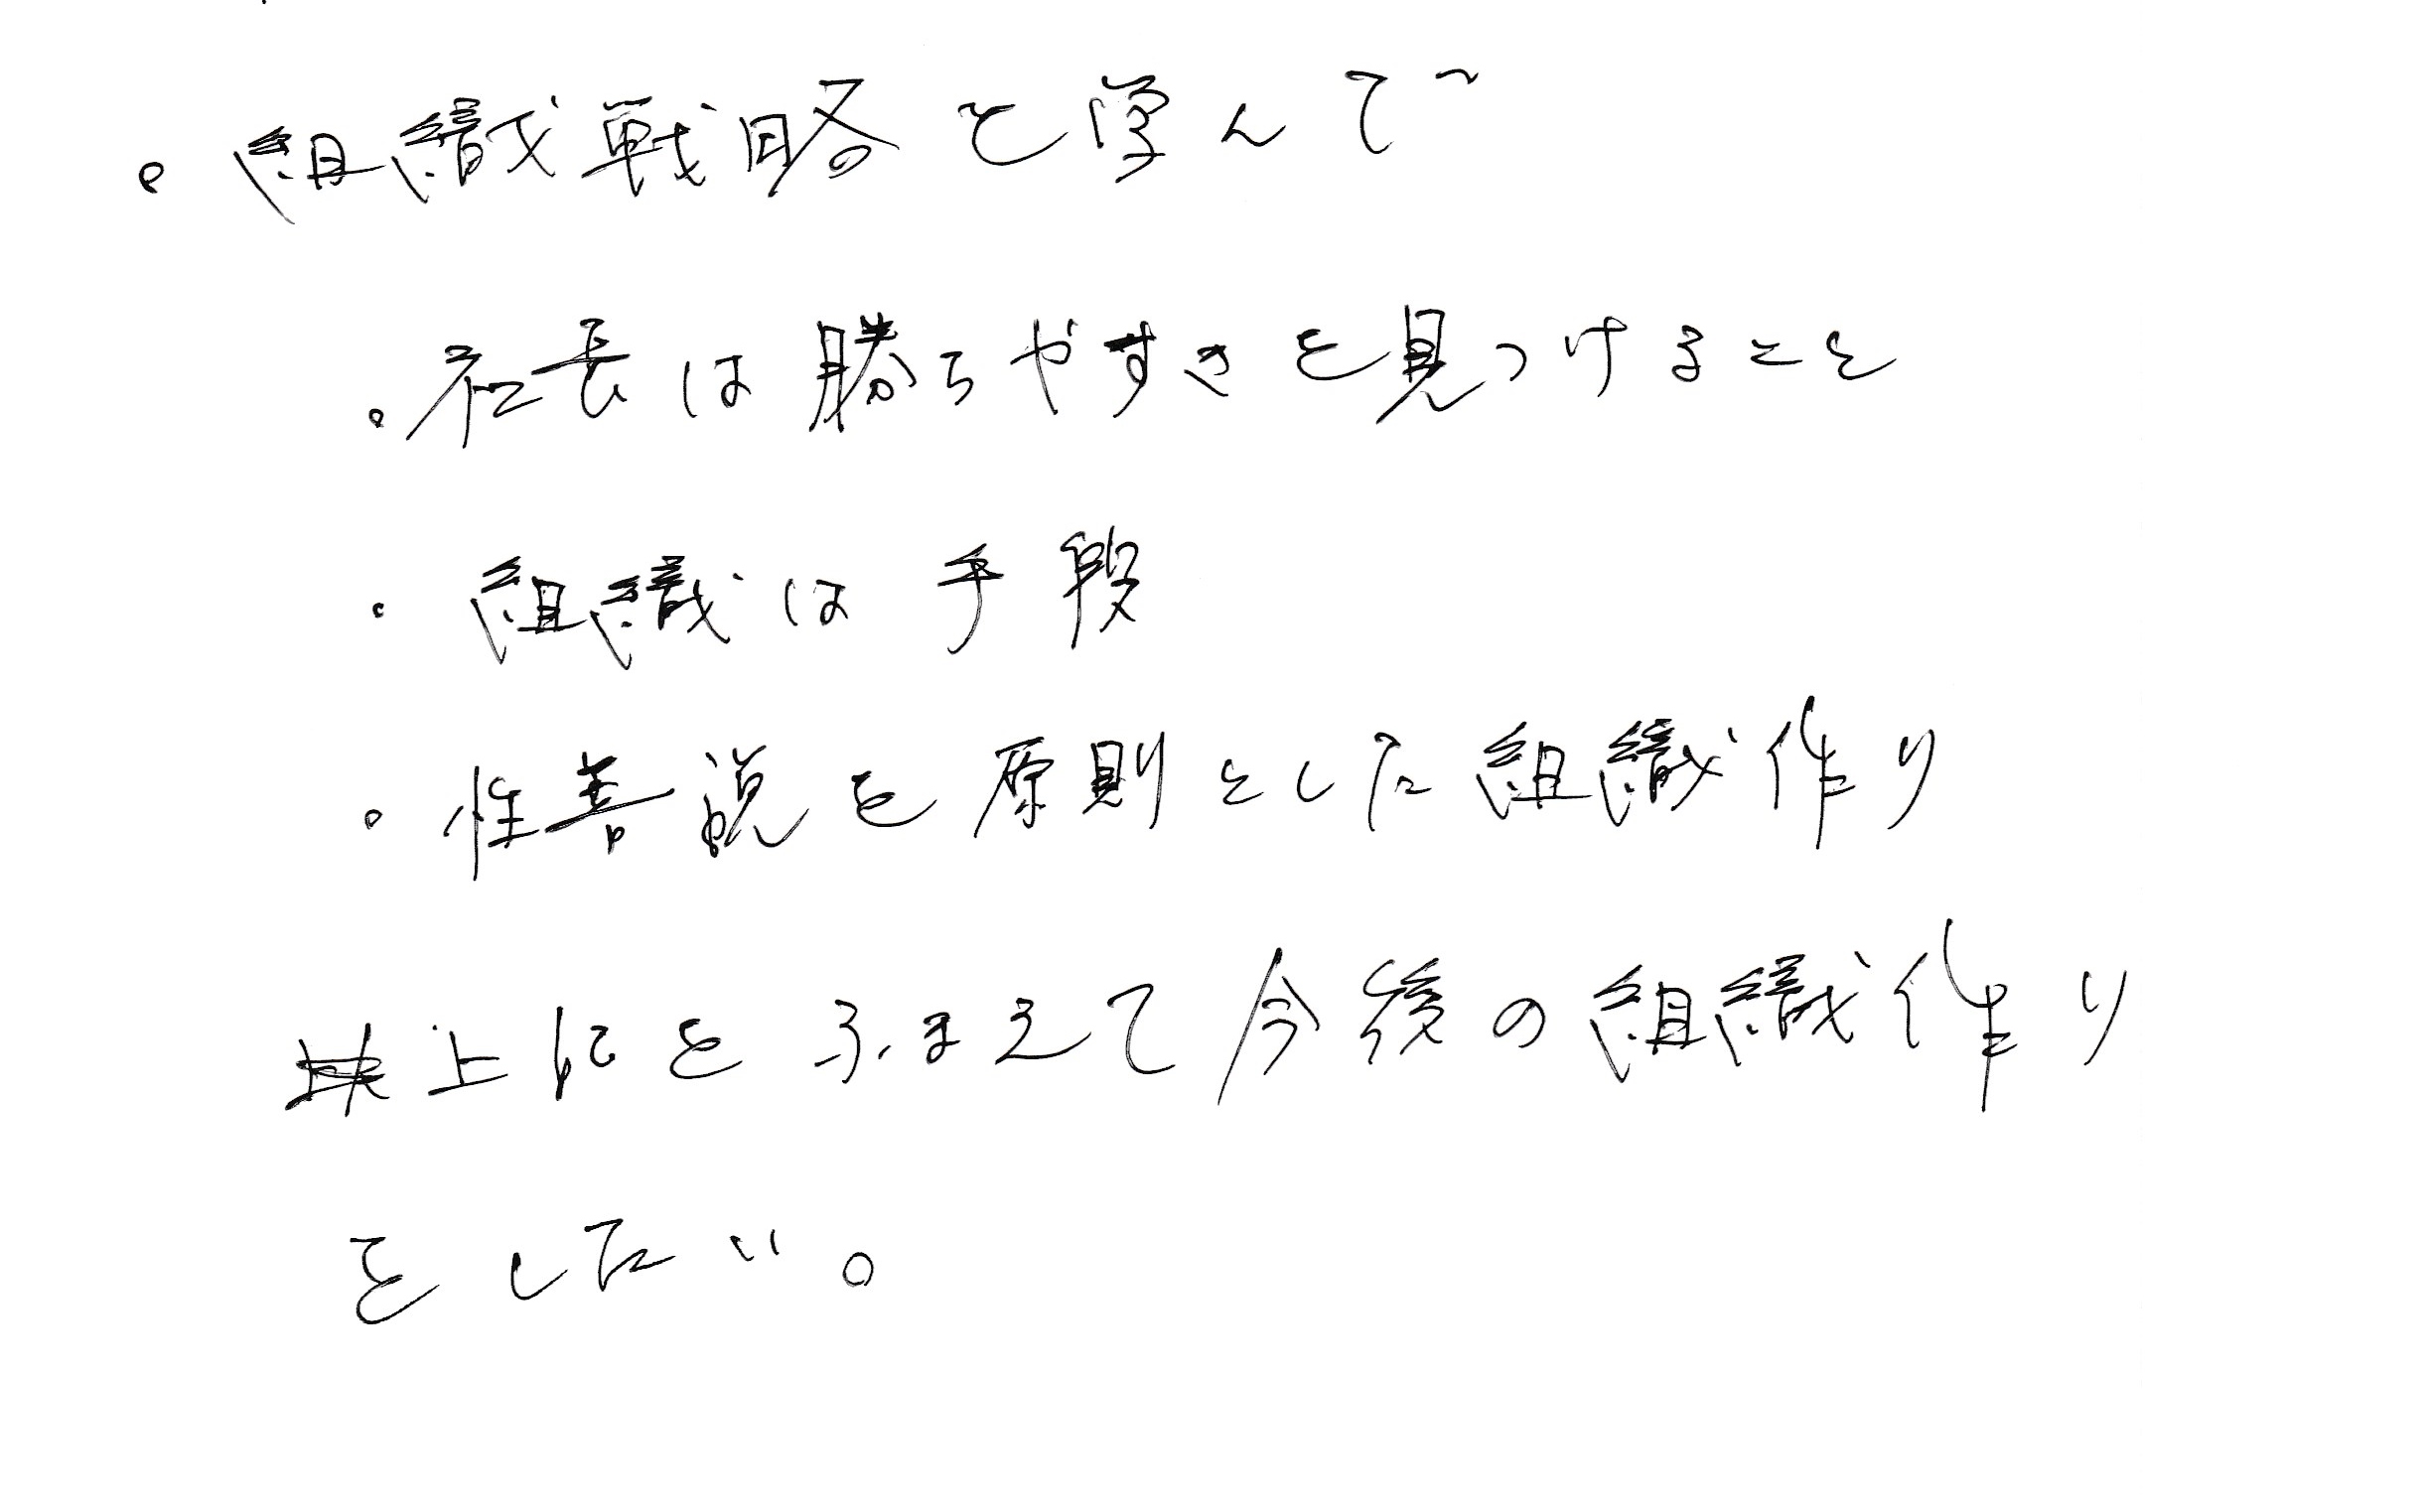 ・組織戦略を学んで
・社長は勝ちやすきを見つけること
・組織は手段
・性善説を原則とした組織作り
上記をふまえて今後の組織作り
をしたい。